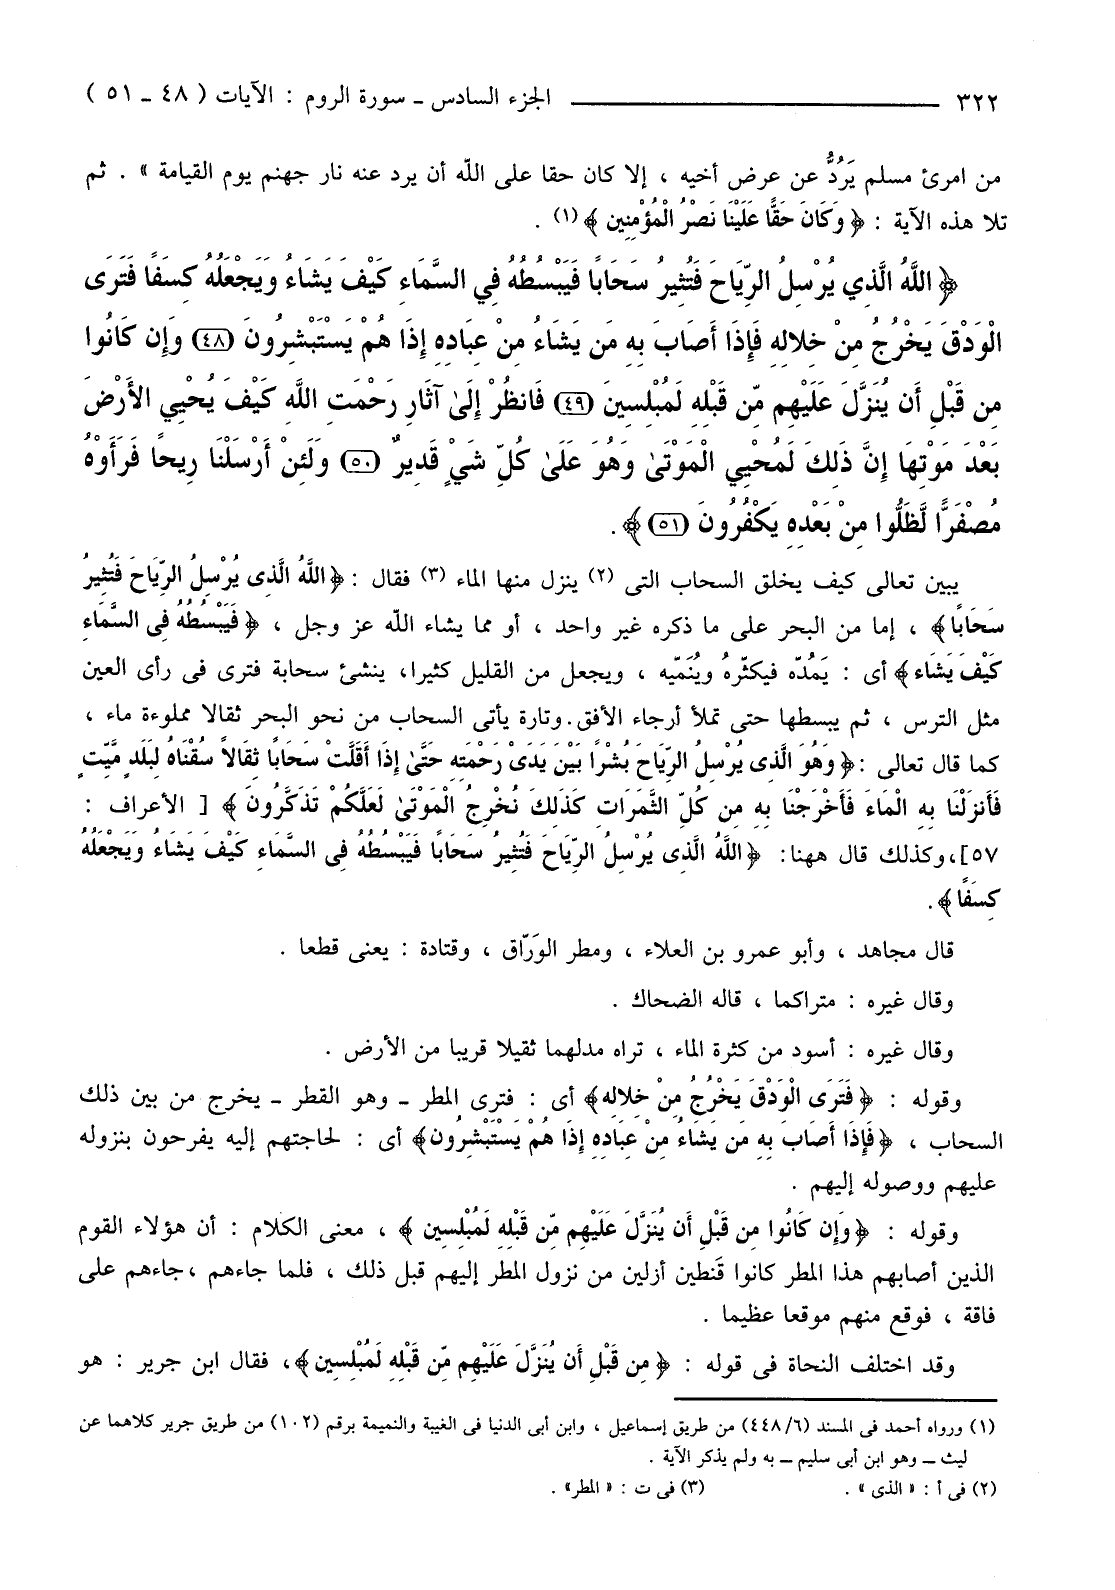 ٣٢٢ ـــــــــــــــــ الجزء السادس ـ سورة الروم : الآيات ( ٤٨ ـ ٥١ )
من امرئ مسلم يَرُدُّ عن عرض أخيه ، إلا كان حقا على اللّه أن يرد عنه نار جهنم يوم القيامة » . ثم
تلا هذه الآية : ﴿ وَكَانَ حَقًّا عَلَيْنَا نَصْرُ الْمُؤْمِنِين ﴾ (١) .
﴿ اللَّهُ الَّذِي يُرْسِلُ الرِّيَاحَ فَتُثِيرُ سَحَابًا فَيَبْسُطُهُ فِي السَّمَاءِ كَيْفَ يَشَاءُ وَيَجْعَلُهُ كِسَفًا فَتَرَى
الْوَدْقَ يَخْرُجُ مِنْ خِلالِهِ فَإِذَا أَصَابَ بِهِ مَن يَشَاءُ مِنْ عِبَادِهِ إِذَا هُمْ يَسْتَبْشِرُونَ (٤٨) وَإِن كَانُوا
مِن قَبْلِ أَن يُنَزَّلَ عَلَيْهِم مِّن قَبْلِهِ لَمُبْلِسِينَ (٤٩) فَانظُرْ إِلَىٰ آثَارِ رَحْمَتِ اللَّهِ كَيْفَ يُحْيِي الأَرْضَ
بَعْدَ مَوْتِهَا إِنَّ ذَلِكَ لَمُحْيِي الْمَوْتَىٰ وَهُوَ عَلَىٰ كُلِّ شَيْءٍ قَدِيرٌ (٥٠) وَلَئِنْ أَرْسَلْنَا رِيحًا فَرَأَوْهُ
مُصْفَرًّا لَّظَلُّوا مِنْ بَعْدِهِ يَكْفُرُونَ (٥١) ﴾ .
يبين تعالى كيف يخلق السحاب التى (٢) ينزل منها الماء (٣) فقال : ﴿ اللَّهُ الَّذِى يُرْسِلُ الرِّيَاحَ فَتُثِيرُ
سَحَابًا ﴾ ، إما من البحر على ما ذكره غير واحد ، أو مما يشاء اللّه عز وجل ، ﴿ فَيَبْسُطُهُ فِى السَّمَاءِ
كَيْفَ يَشَاء ﴾ أى : يَمُدّه فيكثّرهُ ويُنَميّه ، ويجعل من القليل كثيرا، ينشئ سحابة فترى فى رأى العين
مثل الترس ، ثم يبسطها حتى تملأ أرجاء الأفق. وتارة يأتى السحاب من نحو البحر ثقالا مملوءة ماء ،
كما قال تعالى : ﴿ وَهُوَ الَّذِى يُرْسِلُ الرِّيَاحَ بُشْرًا بَيْنَ يَدَىْ رَحْمَتِهِ حَتَّىٰ إِذَا أَقَلَّتْ سَحَابًا ثِقَالاً سُقْنَاهُ لِبَلَدٍ مَّيِّتٍ
فَأَنزَلْنَا بِهِ الْمَاءَ فَأَخْرَجْنَا بِهِ مِن كُلِّ الثَّمَرَاتِ كَذَلِكَ نُخْرِجُ الْمَوْتَىٰ لَعَلَّكُمْ تَذَكَّرُونَ ﴾ [ الأعراف :
٥٧]، وكذلك قال ههنا: ﴿ اللَّهُ الَّذِى يُرْسِلُ الرِّيَاحَ فَتُثِيرُ سَحَابًا فَيَبْسُطُهُ فِى السَّمَاءِ كَيْفَ يَشَاءُ وَيَجْعَلُهُ
كِسَفًا ﴾.
قال مجاهد ، وأبو عمرو بن العلاء ، ومطر الوَرّاق ، وقتادة : يعنى قطعا .
وقال غيره : متراكما ، قاله الضحاك .
وقال غيره : أسود من كثرة الماء ، تراه مدلهما ثقيلا قريبا من الأرض .
وقوله : ﴿ فَتَرَى الْوَدْقَ يَخْرُجُ مِنْ خِلالِه ﴾ أى : فترى المطر ـ وهو القطر ـ يخرج من بين ذلك
السحاب ، ﴿ فَإِذَا أَصَابَ بِهِ مَن يَشَاءُ مِنْ عِبَادِهِ إِذَا هُمْ يَسْتَبْشِرُون ﴾ أى : لحاجتهم إليه يفرحون بنزوله
عليهم ووصوله إليهم .
وقوله : ﴿ وَإِن كَانُوا مِن قَبْلِ أَن يُنَزَّلَ عَلَيْهِم مِّن قَبْلِهِ لَمُبْلِسِين ﴾ ، معنى الكلام : أن هؤلاء القوم
الذين أصابهم هذا المطر كانوا قَنطين أزلين من نزول المطر إليهم قبل ذلك ، فلما جاءهم ،جاءهم على
فاقة ، فوقع منهم موقعا عظيما .
وقد اختلف النحاة فى قوله : ﴿ مِن قَبْلِ أَن يُنَزَّلَ عَلَيْهِم مِّن قَبْلِهِ لَمُبْلِسِين ﴾، فقال ابن جرير : هو
(١) ورواه أحمد فى المسند (٤٤٨/٦) من طريق إسماعيل ، وابن أبى الدنيا فى الغيبة والنميمة برقم (١٠٢) من طريق جرير كلاهما عن
ليث ـ وهو ابن أبى سليم ـ به ولم يذكر الآية .
(٢) فى أ : « الذى » . (٣) فى ت : « المطر» .